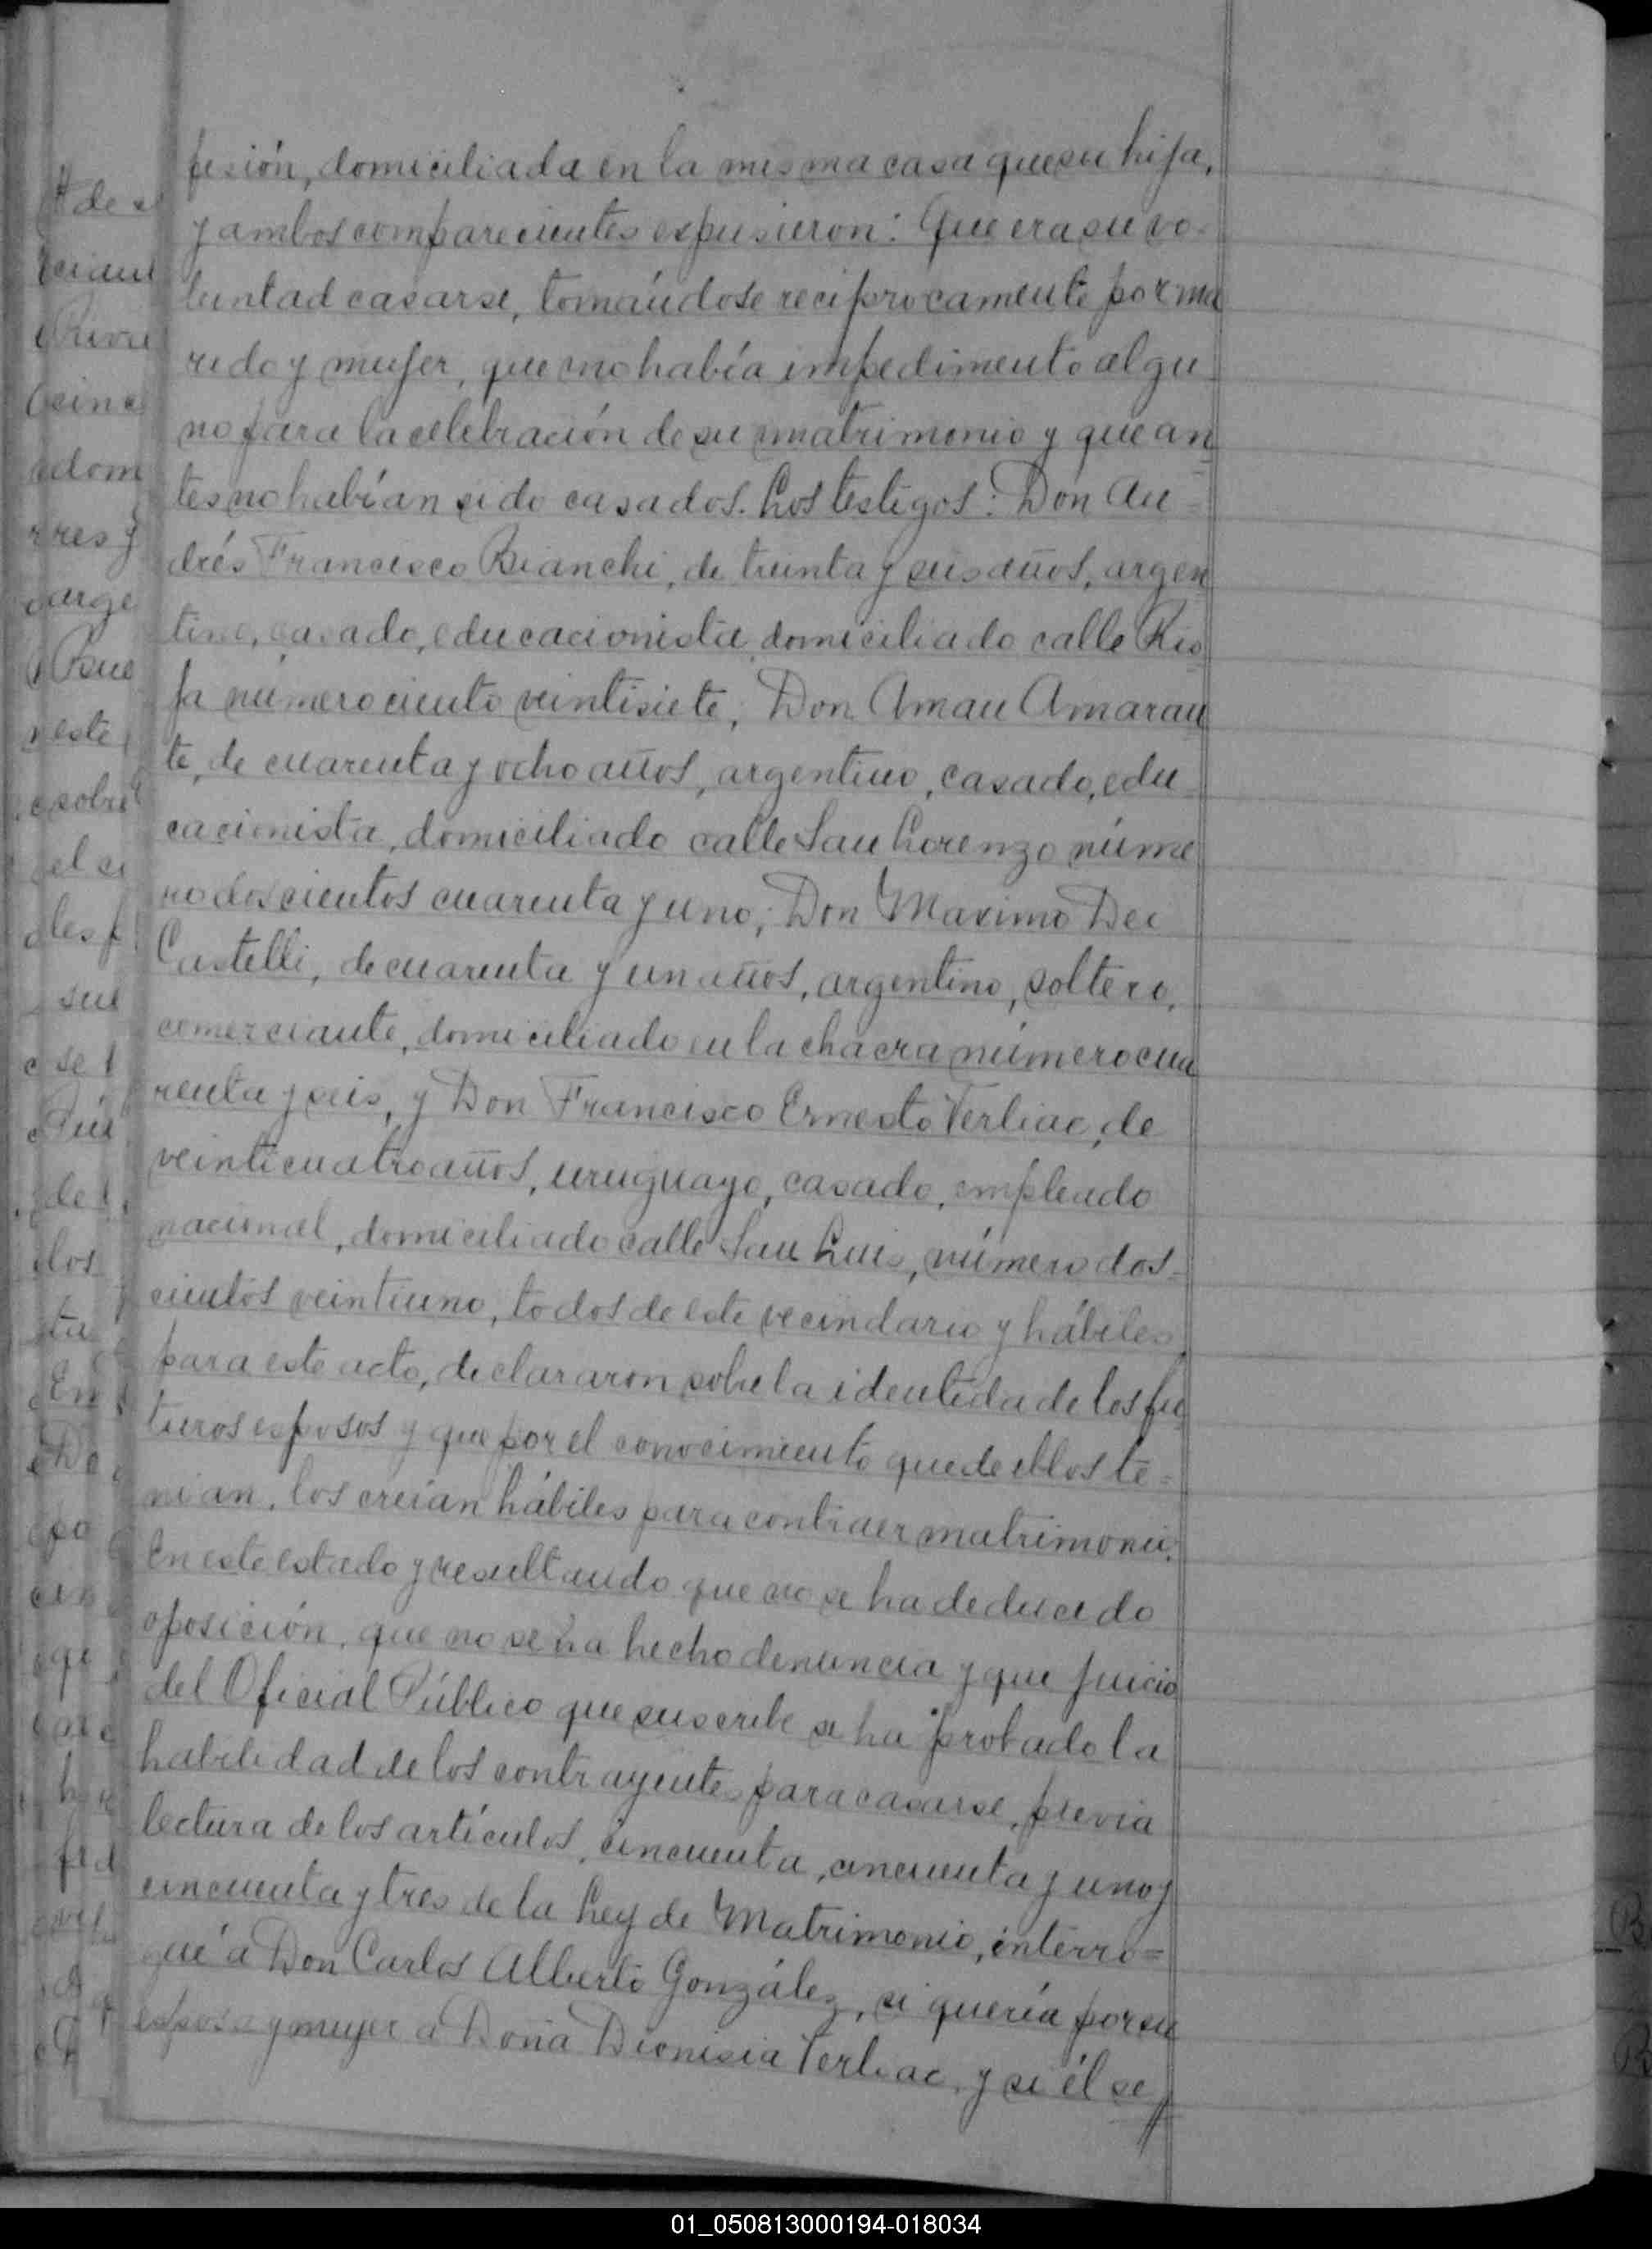 fesión, domiciliada en la misma casa que su hija,
y ambos comparecientes expusieron: Que era su vo-
luntad casarse, tomándose reciprocamente por ma
rido y mujer, que no había impedimento algu
no para la celebración de su matrimonio y que an
tes no habían sido casados. Los testigos: Don An=
drés Francisco Bianchi, de treinta y seis años, argen
tino, casado, educacionista, domiciliado calle Rio
ja número ciento veintisiete; Don Aman Amaran
te, de cuarenta y ocho años, argentino, casado, edu
cacionista, domiciliado calle San Lorenzo núme
ro doscientos cuarenta y uno; Don Maximo Dei
Castelli, de cuarenta y un años, argentino, soltero,
comerciante, domiciliado en la chacra número cua
renta y seis, y Don Francisco Ernesto Verliac, de
veinticuatro años, uruguayo, casado, empleado
nacional, domiciliado calle San Luis, número dos=
cientos veintiuno, todos de este vecindario y hábiles
para este acto, declararon sobre la identida de los fu
turos esposos y que por el conocimiento que de ellos te=
nian, los creian hábiles para contraer matrimonio.
En este estado y resultando que no se ha deducido
oposición, que no se ha hecho denuncia y que juicio
del Oficial Público que suscribe se ha probado la
habilidad de los contrayentes para casarse, previa
lectura de los artículos, cincuenta, cincuenta y uno y
cincuenta y tres de la Ley de Matrimonio, interro=
gué a Don Carlos Alberto González, si quería por su
esposa y mujer a Doña Dionisia Verliac, y si él se
01_050813000194-018034